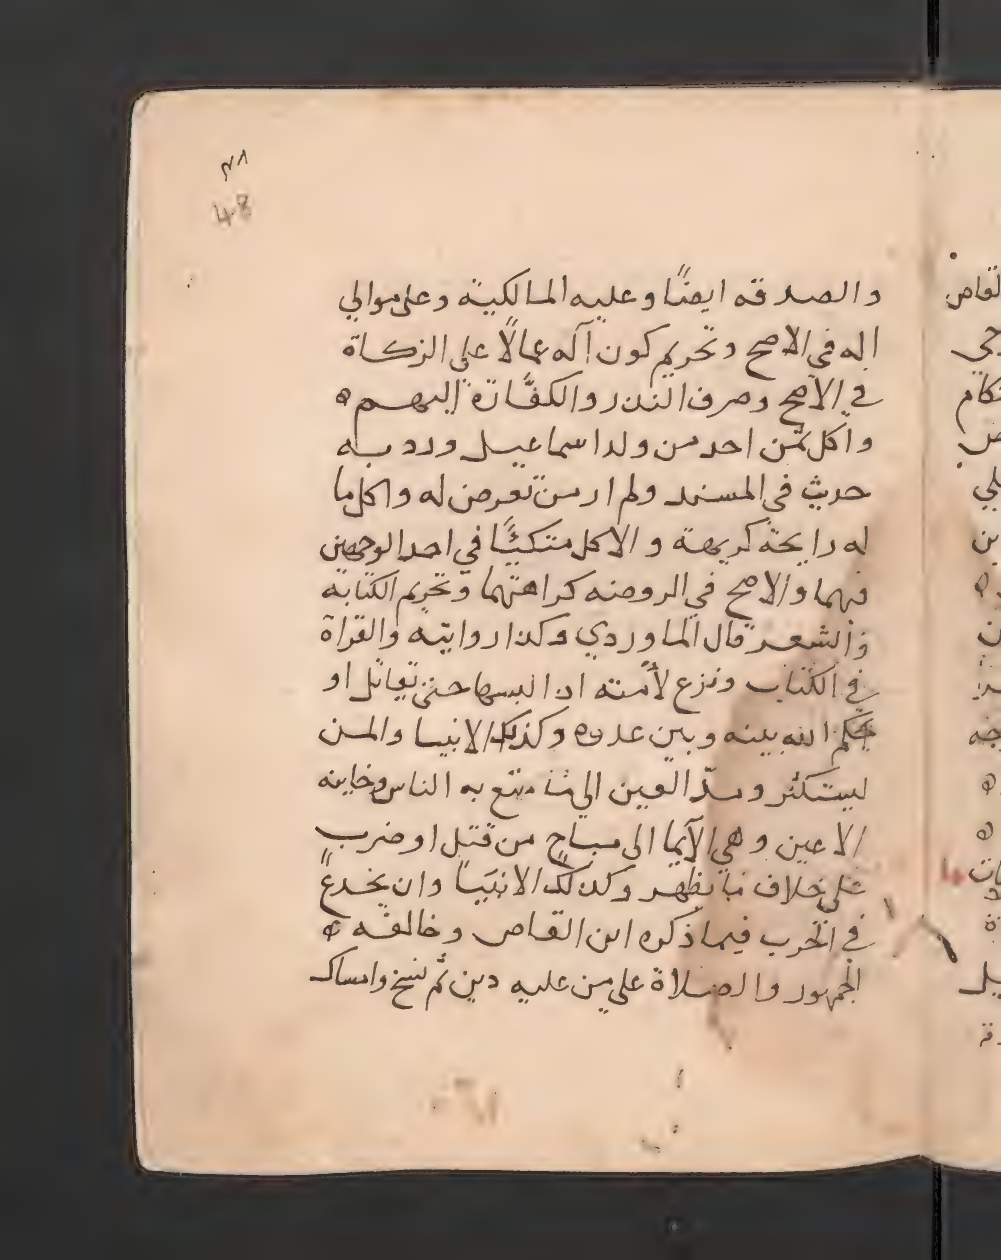 ٤٨
48
والصدقه ايضا وعليه المالكية وعلى موالي
اله في الاصح وتحريم كون آله عمالا على الزكاة
في الاصح وصرف النذر والكفارة اليهم ه
واكل ثمن احد من ولد اسماعيل ورد به
حديث في المسند ولم ار من تعرض له واكل ما
له رايحة كريهة والاكل متكئا في احد الوجهين
فيهما والاصح في الروضه كراهتهما وتحريم الكتابه
والشعر قال الماوردي وكذا روايته والقراة
في الكتاب ونزع لأمته اذا لبسها حتى يقاتل او
يحكم الله بينه وبين عدوه وكذلك الانبيا والمن
ليستكثر ومد العين الي ما متع به الناس وخاينه
الاعين وهي الايما الى مباح من قتل او ضرب
على خلاف ما يظهر وكذلك الانبيا وان يخدع
في الحرب فيما ذكره ابن القاص وخالفه ه
الجمهور والصلاة على من عليه دين ثم نسخ وامساك
القاص